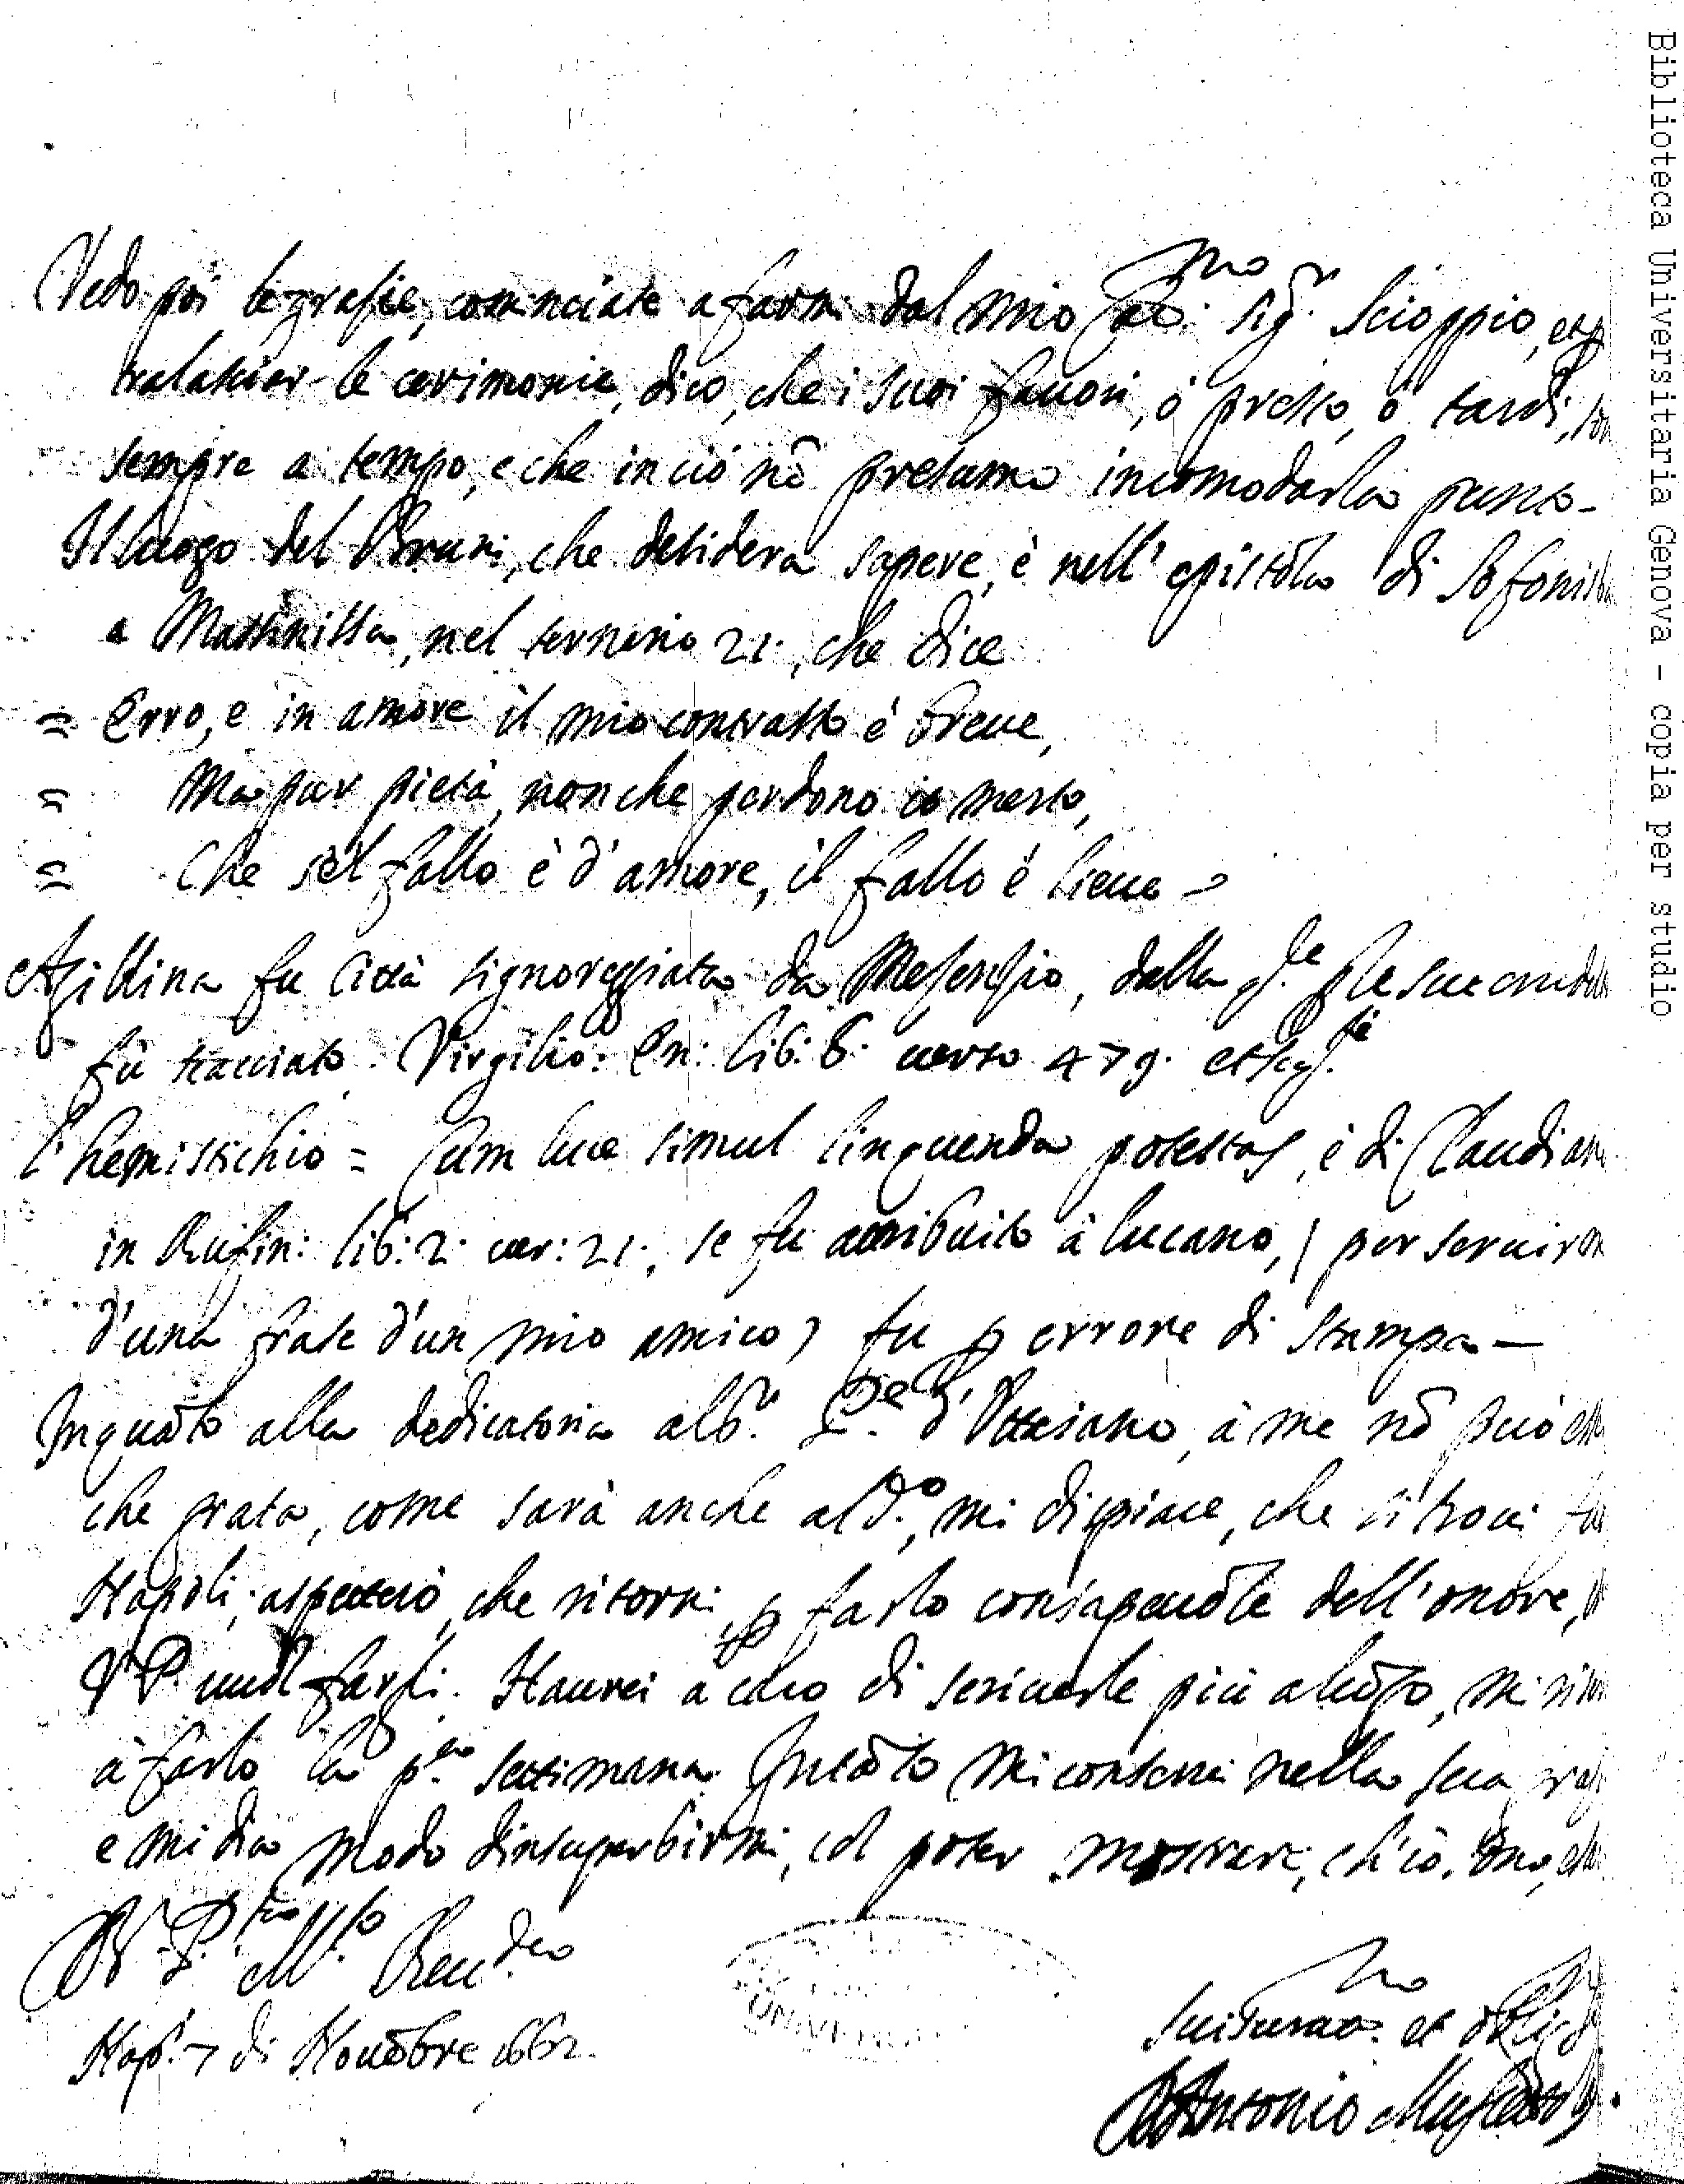 Vedo poi le grazie, cominciate a farmi dal mio Sig.r Scioppio, et p
tralasciar le cerimonie, dico, che i suoi fauori, ò presto, ò tardi, son
sempre a tempo, e che in ciò nō presumo incomodarla punto-
Il luogo del Bruni, che desidera sapere, è nell' epistola di Sofonis
a Massinissa, nel ternario 21., che dice
= Erro, e in amore il mio contratto è breue,
= Ma pur pietà, non che perdono io merto,
= Che se'l fallo è d'amore, il fallo è lieue =
Agillina fu Città signoreggiata da Mesenzio, dalla q.le p le sue crudel
fù scacciato. Virgilio: En: lib: 8. verso 479. et seq.te
L'hemistichio = Cum luce simul linquenda potestas, è di Claudian
in Rufin: lib: 2. ver: 21., se fu attribuito à Lucano, ( per seruirm
d'una frase d'un mio amico) fu p errore di stampa -
Inquāto alla dedicatoria al S.r P.pe d'Ottaiano, à me nō può
che grata, come sarà anche al d.o, mi dispiace, che si troui
Napoli; aspetterò, che ritorni, p farlo consapeuole dell'onore,
V P uuol farli. Haurei à caro di scriuerle più à lūgo, mi
à farlo la p.a settimana. Intāto mi conserui nella sua graz
e mi dia modo d'insuperbirmi, col poter mostrare, ch'io sono,
Di V. P. M.to Reu.da
Nap. 7 di Nouēbre 1662.
et oblig
Antonio Muscettola
UNIVER
Biblioteca Universitaria Genova - copia per studio